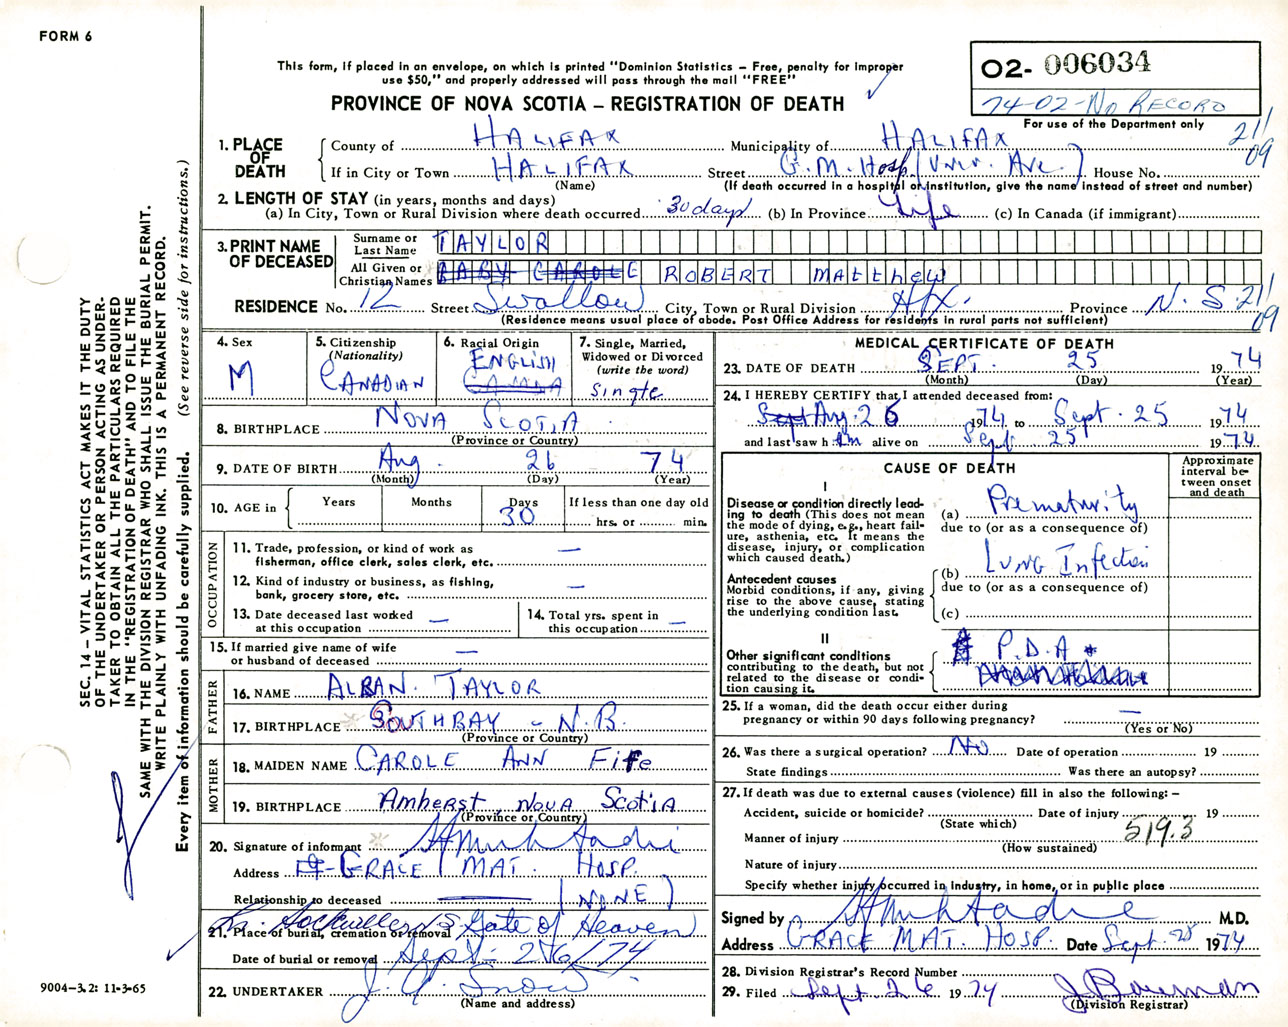 FORM 6
This form, if placed in an envelope, on which is printed "Dominion Statistics – Free, penalty for improper
use $50," and properly addressed will pass through the mail "FREE"
PROVINCE OF NOVA SCOTIA – REGISTRATION OF DEATH
02- 006034
74-02-No RECORD
For use of the Department only
211
09
1. PLACE OF DEATH
County of HALIFAX Municipality of HALIFAX
If in City or Town HALIFAX Street G.M. Hosp. (Univ. Ave.) House No.
(Name) (If death occurred in a hospital or institution, give the name instead of street and number)
2. LENGTH OF STAY (in years, months and days)
(a) In City, Town or Rural Division where death occurred 30 days (b) In Province Life (c) In Canada (if immigrant)
3. PRINT NAME OF DECEASED
Surname or Last Name TAYLOR
All Given or Christian Names BABY CAROLE ROBERT MATTHEW
RESIDENCE No. 12 Street Swallow City, Town or Rural Division Hfx. Province N.S. 211
09
(Residence means usual place of abode. Post Office Address for residents in rural parts not sufficient)
4. Sex
M
5. Citizenship
(Nationality)
CANADIAN
6. Racial Origin
ENGLISH
7. Single, Married,
Widowed or Divorced
(write the word)
single
8. BIRTHPLACE NOVA SCOTIA
(Province or Country)
9. DATE OF BIRTH Aug. 26 74
(Month) (Day) (Year)
10. AGE in
Years
Months
Days
30
If less than one day old
hrs. or min.
OCCUPATION
11. Trade, profession, or kind of work as
fisherman, office clerk, sales clerk, etc. —
12. Kind of industry or business, as fishing,
bank, grocery store, etc. —
13. Date deceased last worked
at this occupation —
14. Total yrs. spent in
this occupation —
15. If married give name of wife
or husband of deceased —
FATHER
16. NAME ALBAN TAYLOR
17. BIRTHPLACE SOUTHBAY - N.B.
(Province or Country)
MOTHER
18. MAIDEN NAME CAROLE ANN Fife
19. BIRTHPLACE Amherst, Nova Scotia
(Province or Country)
20. Signature of informant
Address GRACE MAT. HOSP.
Relationship to deceased (NONE)
21. Place of burial, cremation or removal Gate of Heaven
Date of burial or removal Sept- 26/74
22. UNDERTAKER J. A. Snow
(Name and address)
MEDICAL CERTIFICATE OF DEATH
23. DATE OF DEATH SEPT. 25 1974
(Month) (Day) (Year)
24. I HEREBY CERTIFY that I attended deceased from:
Sept Aug. 26 1974 to Sept. 25 1974
and last saw h im alive on Sept 25 1974
CAUSE OF DEATH
Approximate
interval be-
tween onset
and death
I
Disease or condition directly lead-
ing to death (This does not mean
the mode of dying, e.g., heart fail-
ure, asthenia, etc. It means the
disease, injury, or complication
which caused death.)
(a) Prematurity
due to (or as a consequence of)
Antecedent causes
Morbid conditions, if any, giving
rise to the above cause, stating
the underlying condition last.
(b) Lung Infection
due to (or as a consequence of)
(c)
II
Other significant conditions
contributing to the death, but not
related to the disease or condi-
tion causing it.
P.D.A
25. If a woman, did the death occur either during
pregnancy or within 90 days following pregnancy? —
(Yes or No)
26. Was there a surgical operation? No Date of operation 19
State findings Was there an autopsy?
27. If death was due to external causes (violence) fill in also the following: –
Accident, suicide or homicide? Date of injury 19
(State which)
519.3
Manner of injury
(How sustained)
Nature of injury
Specify whether injury occurred in Industry, in home, or in public place
Signed by M.D.
Address GRACE MAT. HOSP. Date Sept. 28 1974
28. Division Registrar's Record Number
29. Filed Sept. 26 1974 J Bowman
(Division Registrar)
SEC. 14 – VITAL STATISTICS ACT MAKES IT THE DUTY
OF THE UNDERTAKER OR PERSON ACTING AS UNDER-
TAKER TO OBTAIN ALL THE PARTICULARS REQUIRED
IN THE "REGISTRATION OF DEATH" AND TO FILE THE
SAME WITH THE DIVISION REGISTRAR WHO SHALL ISSUE THE BURIAL PERMIT.
WRITE PLAINLY WITH UNFADING INK. THIS IS A PERMANENT RECORD.
Every item of information should be carefully supplied. (See reverse side for instructions.)
9004-3.2: 11-3-65